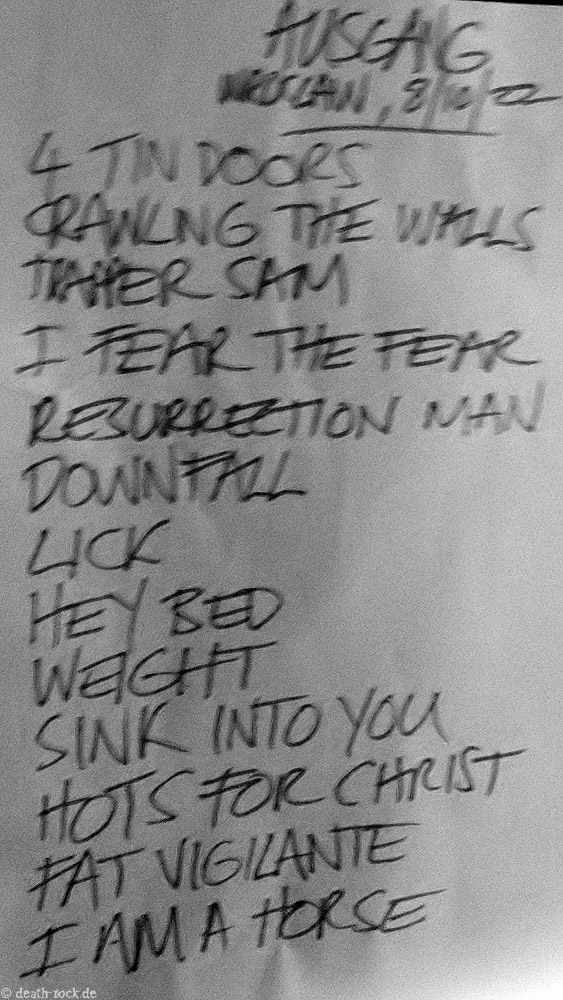 AUSGANG
WROCLAW, 8/10/22
4 TIN DOORS
CRAWLING THE WALLS
TRAPPER SAM
I FEAR THE FEAR
RESURRECTION MAN
DOWNFALL
LICK
HEY BED
WEIGHT
SINK INTO YOU
HOTS FOR CHRIST
FAT VIGILANTE
I AM A HORSE
© death-rock.de